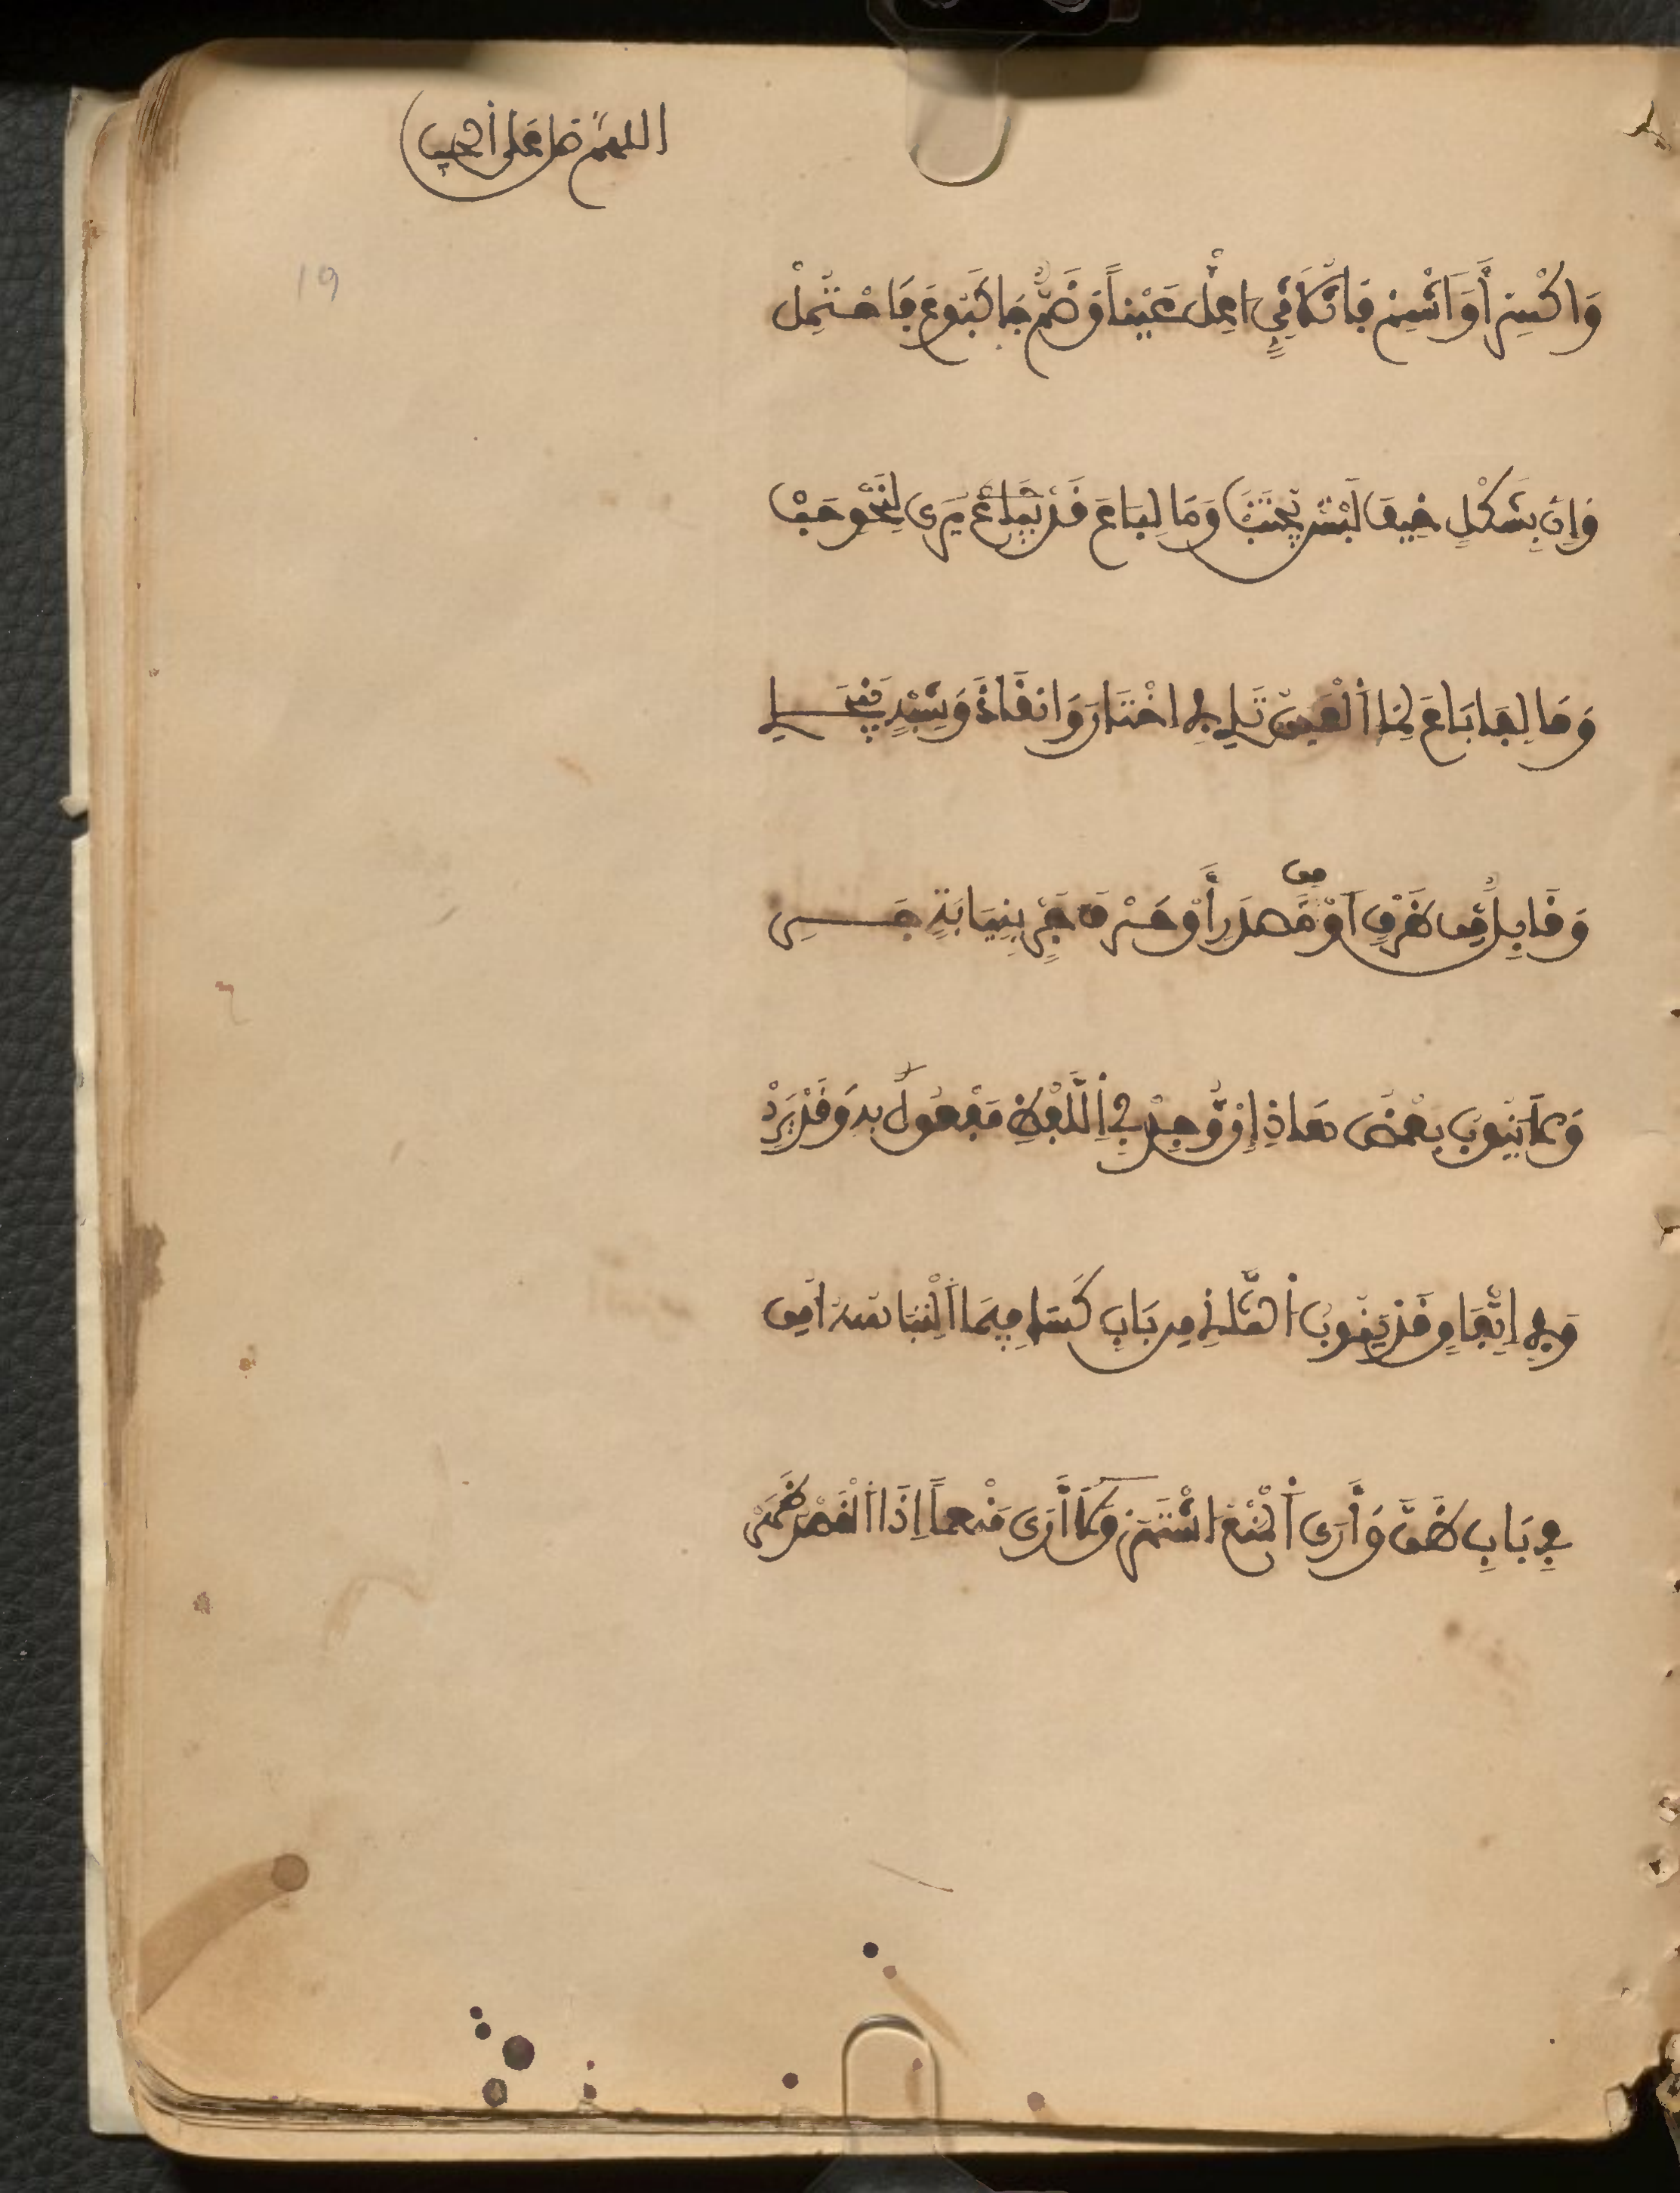 اللهم صل على الحبيب
19
وَاكْسِرْ أَوَ اشْمِمْ فَا ثُلَاثِيٍّ اعِلّْ عَيْناً وَضَمٌّ جَا كَبُوعَ فَاحْتُمِلْ
وَإِن بِشَكْلٍ خِيفَ لَبْسٌ يُجْتَنَبْ وَمَا لِبَاعَ قَدْ يُرَى لِنَحْوِ حَبّْ
وَمَا لِفَا بَاعَ لِمَا الْعَيْنُ تَلِي فِي اخْتَارَ وَانقَادَ وَشِبْهٍ يَنجَلِي
وَقَابِلٌ مِن ظَرْفٍ اَوْ مِن مَّصْدَرِ أَوْ حَرْفِ جَرٍّ بِنِيَابَةٍ حَرِي
وَلَا يَنُوبُ بَعْضُ هَاذِي إِن وُّجِدْ فِي اللَّفْظِ مَفْعُولٌ بِهِ وَقَدْ يَرِدْ
وَبِاتِّفَاقٍ قَدْ يَنُوبُ الثَّانِ مِن بَابِ كَسَا فِيمَا الْتِبَاسُهُ امِن
فِي بَابِ ظَنَّ وَأَرَى الْمَنْعُ اشْتَهَرْ وَلَا أَرَى مَنْعاً إِذَا الْقَصْدُ ظَهَرْ